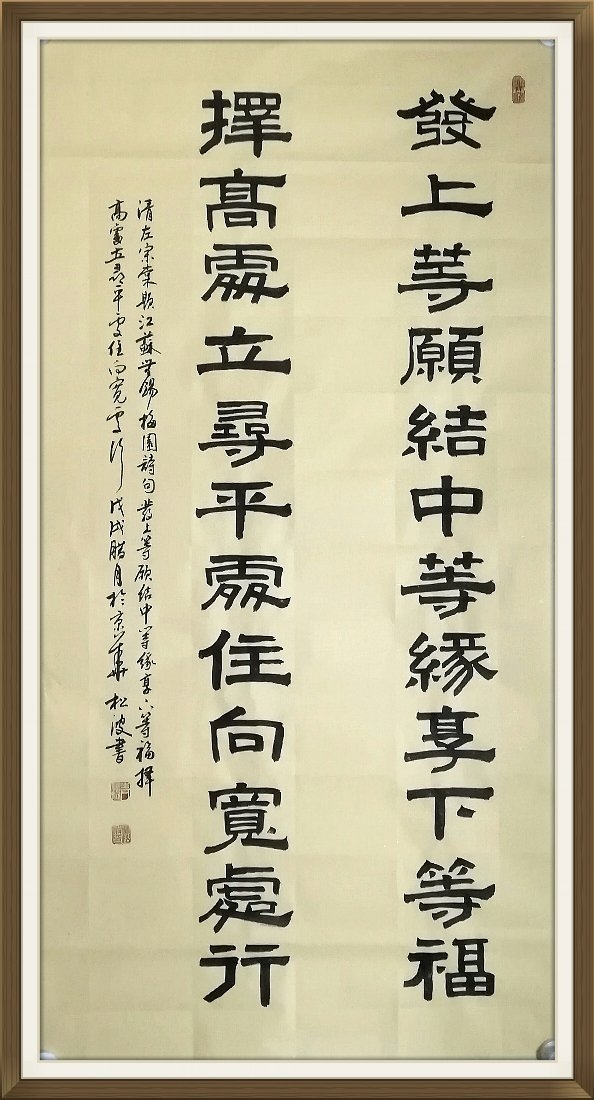 發上等願結中等緣享下等福
擇高處立尋平處住向寬處行
清左宗棠題江蘇無錫梅園詩句發上等願結中等緣享下等福擇
高處立尋平處住向寬處行戊戌腊月於京華松波書